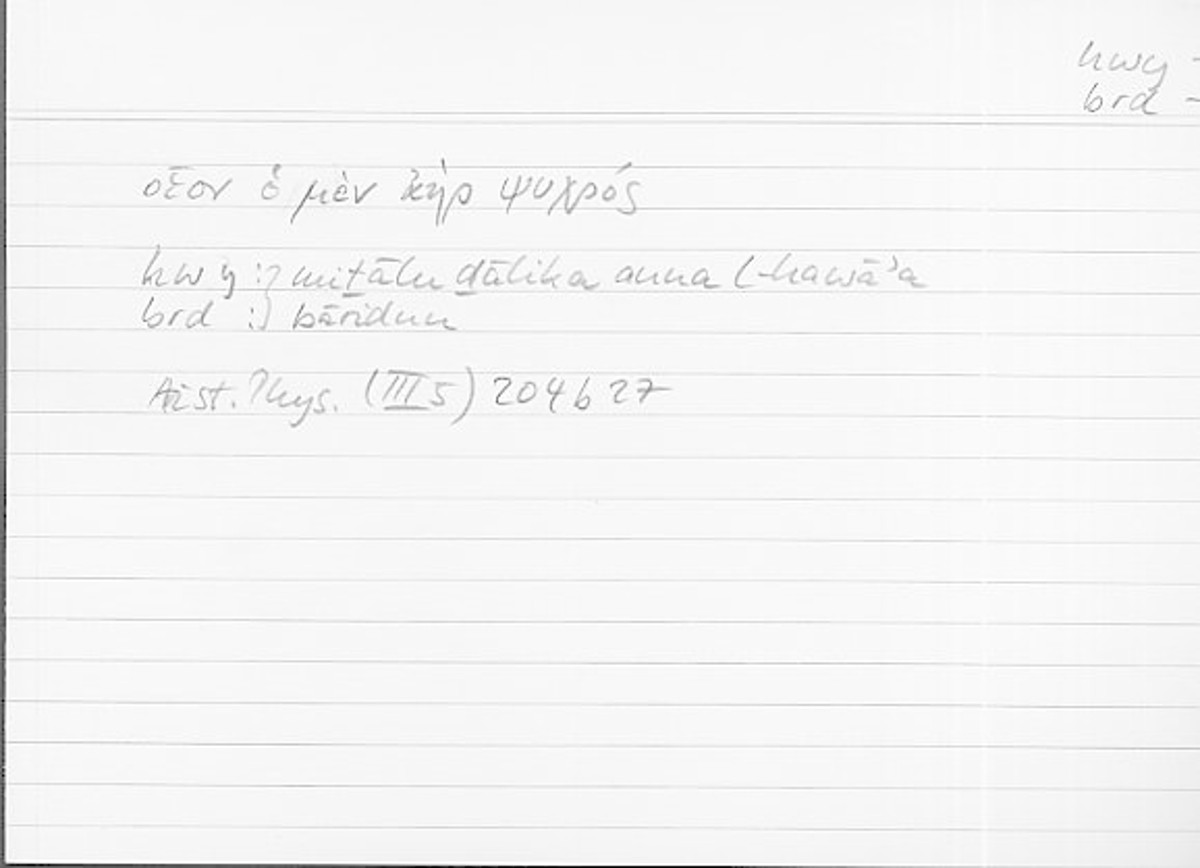 hwy -
brd -
οἷον ὁ μὲν ἀὴρ ψυχρός
hwy :] miṯālu ḏālika anna l-hawāʾa
brd :] bāridun
Arist. Phys. (III 5) 204b27